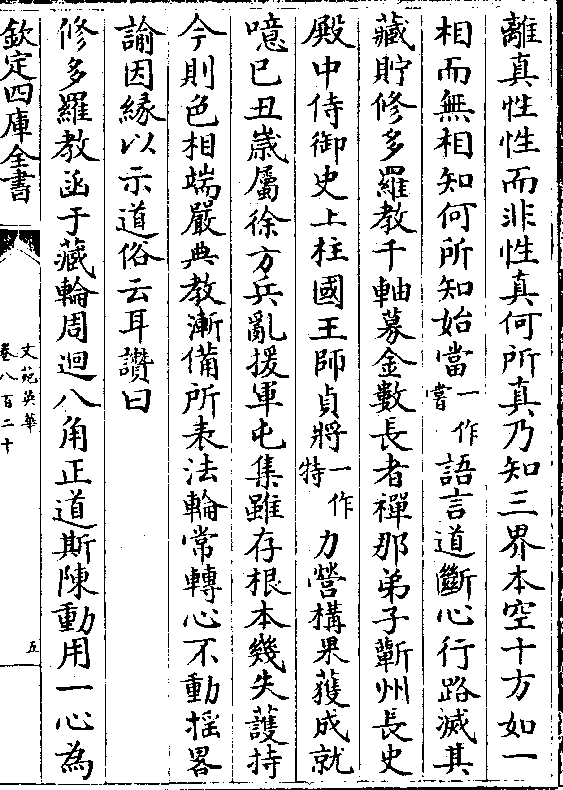 離真性性而非性真何所真乃知三界本空十方如一
相而無相知何所知始當一作嘗語言道斷心行路滅其
藏貯修多羅教千軸募金數長者禪那弟子蘄州長史
殿中侍御史上柱國王師貞將一作特力營構果獲成就
噫已丑歲屬徐方兵亂援軍屯集雖存根本幾失護持
今則色相端嚴典教漸備所表法輪常轉心不動揺畧
諭因緣以示道俗云耳讚曰
修多羅教函于藏輪周迴八角正道斯陳動用一心為
欽定四庫全書
文苑英華
卷八百二十
五